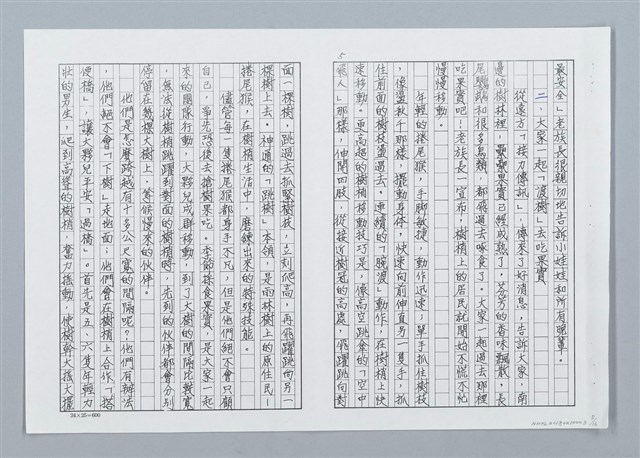 最安全」老族長很親切地告訴小娃娃和所有晚輩。
二、大家一起「渡樹」去吃果實
從遠方「接力傳訊」,傳來了好消息,告訴大家,南
邊的樹林裡,纍纍果實已經成熟了,芬芳的香味飄散,長
尾和很多鳥類,都飛過去啄食了。大家一起過去那裡
吃果實吧!老族長一宣布,樹梢上的居民就開始不慌不忙
慢慢移動。
年輕的捲尾猴,手腳敏捷,動作迅速;單手抓住樹枝
,像盪秋千那樣,擺動身体,快速向前伸直另一隻手,抓
住前面的樹枝盪過去。連續的「腕渡」動作,在樹梢上快
速移動。更高超的樹梢移動技巧是,像高空跳傘的「空中
飛人」那樣,伸開四肢,從接近樹冠的高處,飛躍跳向對
5
面一棵樹,跳過去抓緊樹枝,立刻爬高,再飛躍跳向另一
棵樹上去。神通的「跳樹」本領,是雨林樹上的原住民—
捲尾猴,在樹梢生活中,磨練出來的特殊技能。
儘管每一隻捲尾猴都身手不凡,但是他們絕不會只顧
自己,爭先恐後去搶樹果吃。季節採食果實,是大家一起
來的團隊行動,大夥兒成群移動,到了大樹間隔比較寬
,無法從樹梢跳躍到對面的樹梢時,先到的伙伴都會分別
停留在幾棵大樹上,等候慢來的伙伴。
他們是怎麼跨越有十多公尺寬的間隔呢?他們有辦法
,他們絕不會「下樹」走地面;他們會在樹梢上合作「搭
便橋」,讓大夥兒平安「過橋」。首先是五、六隻年輕力
壯的男生,爬到高聳的樹梢,奮力搖動,使樹幹大搖大擺
24×25=600